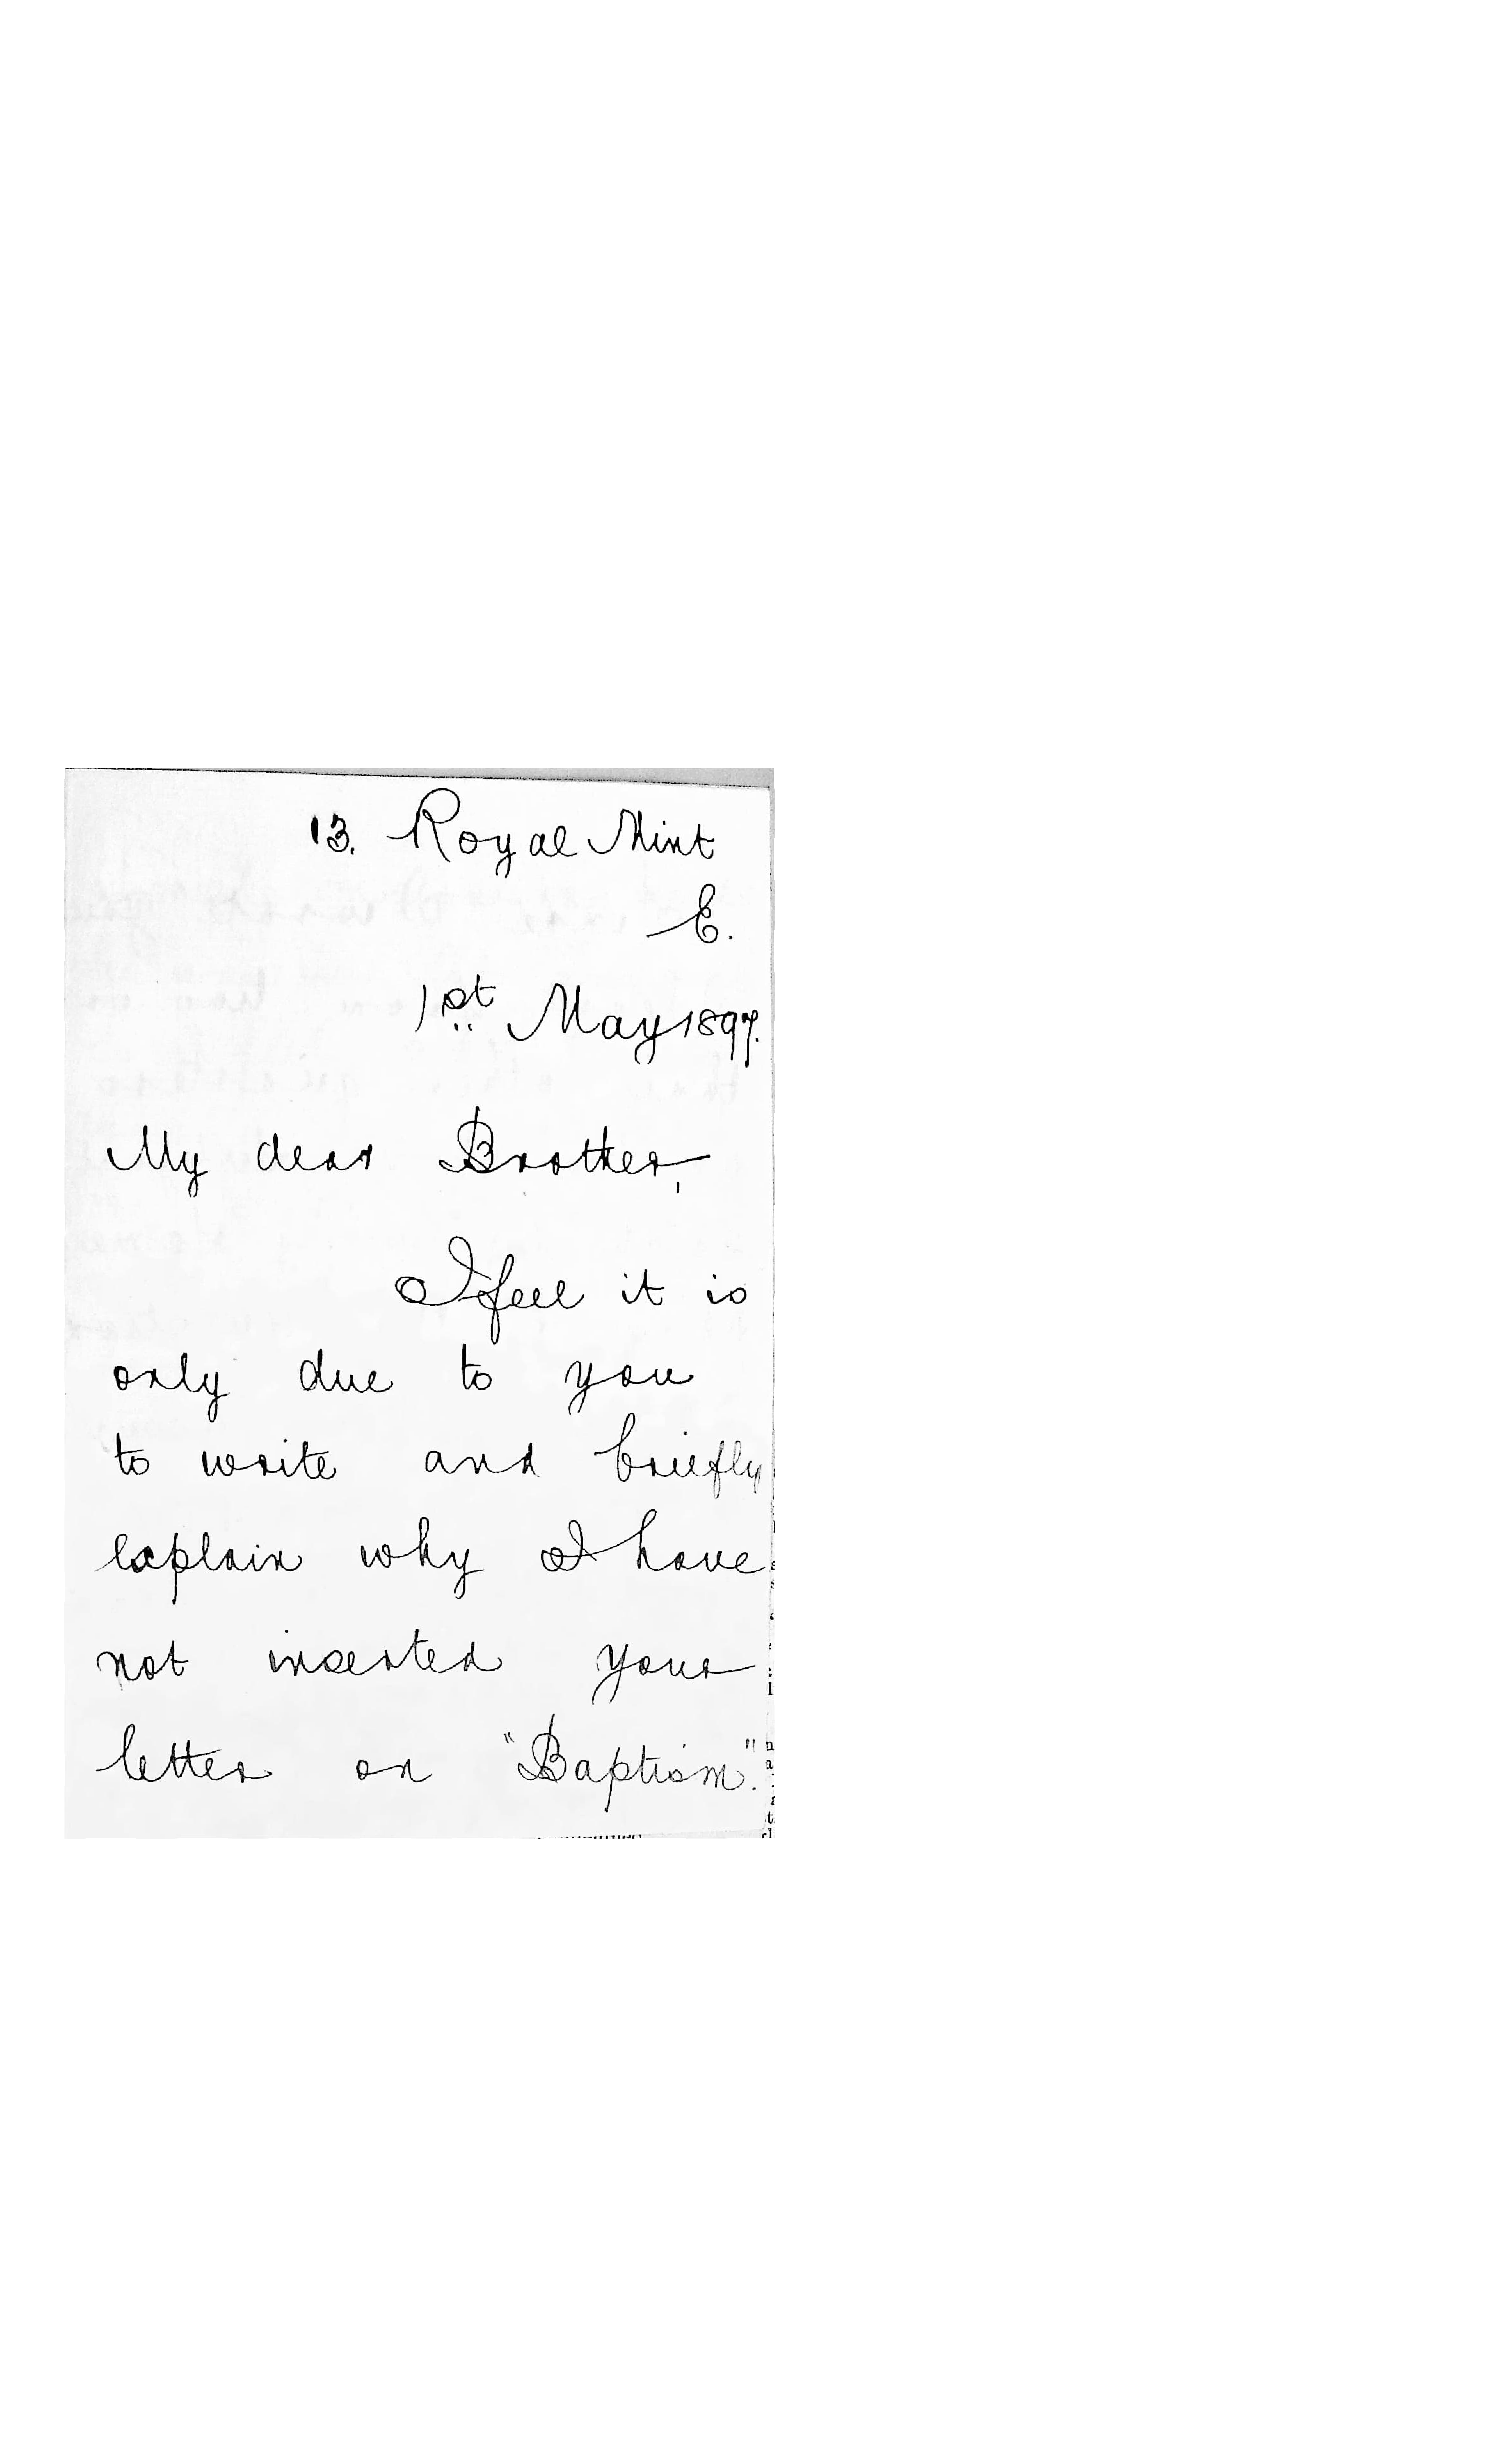 13. Royal Mint
E.
1st May 1897.
My dear Brother,
I feel it is
only due to you
to write and briefly
explain why I have
not inserted your
letter on "Baptism".